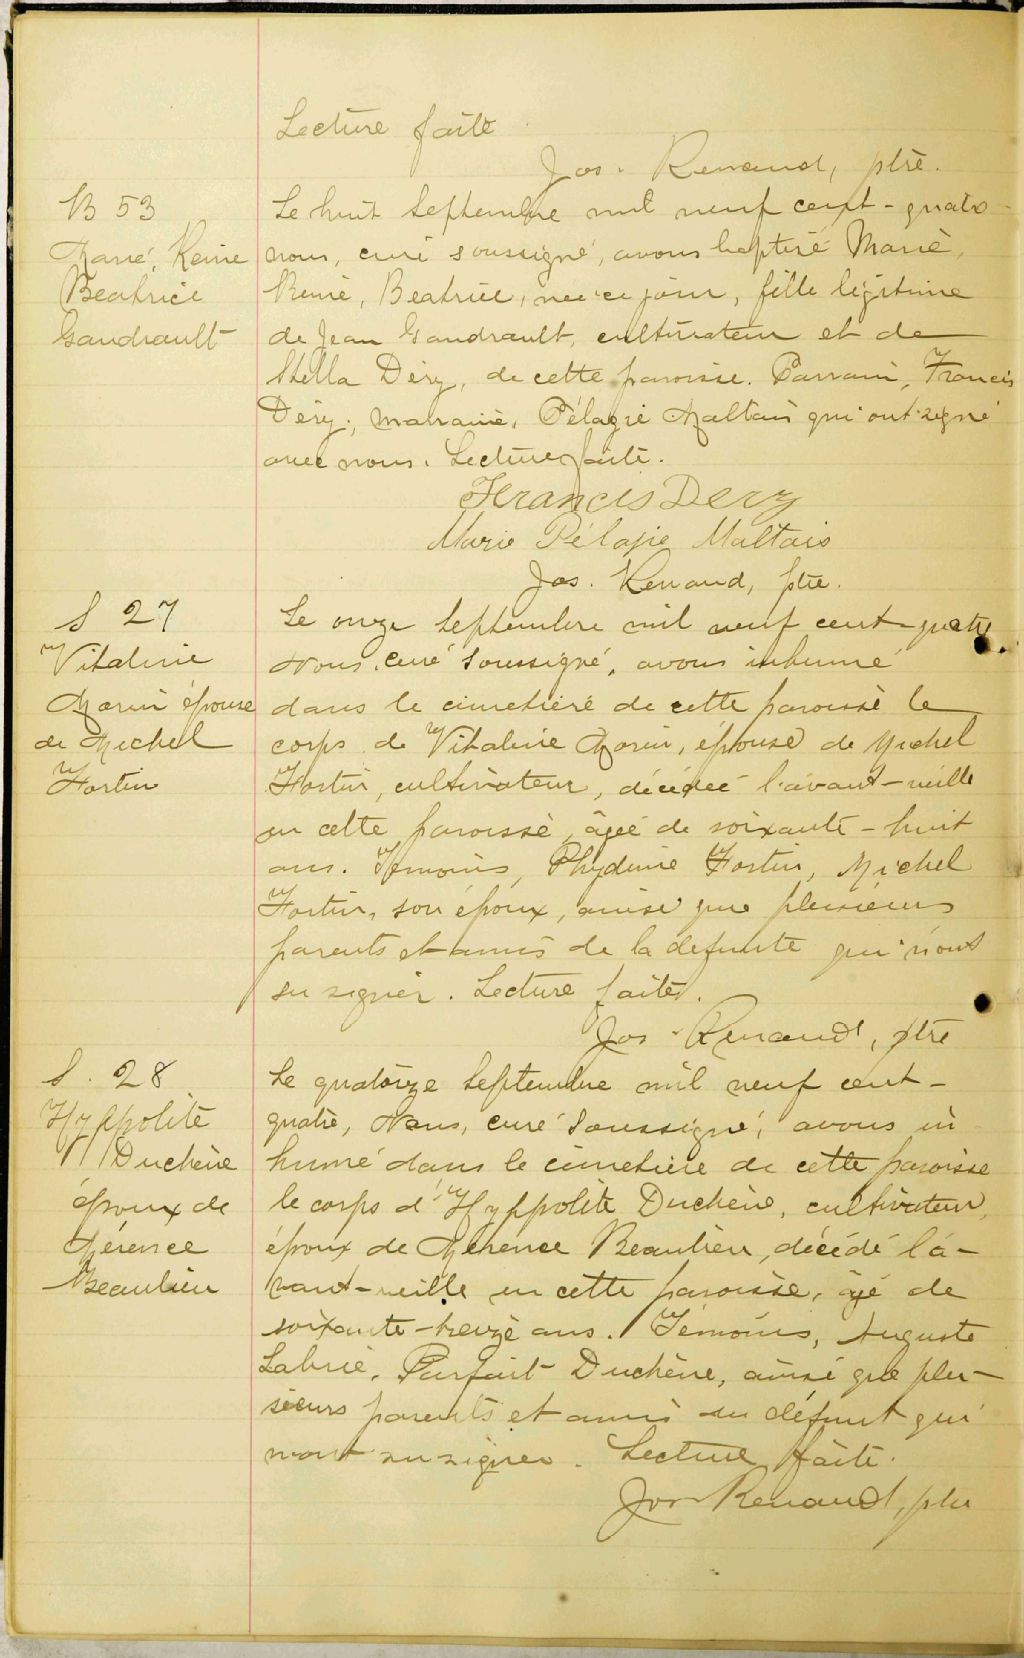 Lecture faite
Jos. Renaud, ptre.
B 53
Marie, Reine
Béatrice
Gaudreault
Le huit Septembre mil neuf cent-quatre
nous, curé soussigné, avons baptisé Marie,
Reine, Béatrice, née ce jour, fille légitime
de Jean Gaudrault, cultivateur et de
Stella Déry, de cette paroisse. Parrain, Francis
Déry, marraine, Pélagie Maltais qui ont signé
avec nous. Lecture faite.
Francis Dery
Marie Pélagie Maltais
Jos. Renaud, ptre.
S 27
Vitaline
Morin épouse
de Michel
Fortin
Le onze Septembre mil neuf cent-quatre
Nous, curé soussigné, avons inhumé
dans le cimetière de cette paroisse le
corps de Vitaline Morin, épouse de Michel
Fortin, cultivateur, décédée l'avant-veille
en cette paroisse, âgée de soixante-huit
ans. Témoins, Phydime Fortin, Michel
Fortin, son époux, ainsi que plusieurs
parents et amis de la defunte qui n'ont
su signer. Lecture faite.
Jos. Renaud, ptre
S. 28
Hyppolite
Duchène
époux de
Mérence
Beaulieu
Le quatorze Septembre mil neuf cent-
quatre, Nous, curé soussigné, avons in
humé dans le cimetière de cette paroisse
le corps d'Hyppolite Duchène, cultivateur,
époux de Mérence Beaulieu, décédé l'a-
vant-veille en cette paroisse, âgé de
soixante-treize ans. Témoins, Auguste
Labrie, Parfait Duchène, ainsi que plu-
sieurs parents et amis du défunt qui
n'ont su signer. Lecture faite.
Jos Renaud, ptre